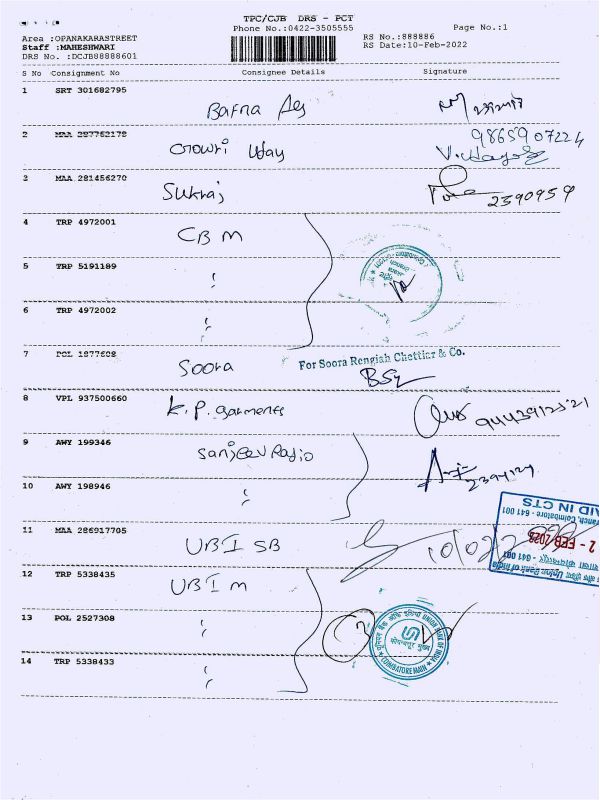 TPC/CJB DRS - PCT
Phone No.:0422-3505555
Page No.:1
Area :OPANAKARASTREET
Staff :MAHESHWARI
DRS No. :DCJB88888601
RS No.:888886
RS Date:10-Feb-2022
S No Consignment No Consignee Details Signature
1 SRT 301682795
Bafna
2 MAA 287762178
Gowri Uday
9865907224
3 MAA 281456270
Sukraj
2390959
4 TRP 4972001
CBM
5 TRP 5191189
6 TRP 4972002
7 POL 1877608
Soora
For Soora Rengiah Chettiar & Co.
8 VPL 937500660
K.P. Garments
9 AWY 199346
Sanjeev Radio
10 AWY 198946
11 MAA 286917705
UBI SB
10/02/2
PAID IN CTS
Branch, Coimbatore - 641 001
- 2 FEB 2023
Union Bank of India
12 TRP 5338435
UBI M
13 POL 2527308
यूनियन बैंक ऑफ इंडिया UNION BANK OF INDIA
कोयम्बत्तूर मुख्य
COIMBATORE MAIN
14 TRP 5338433